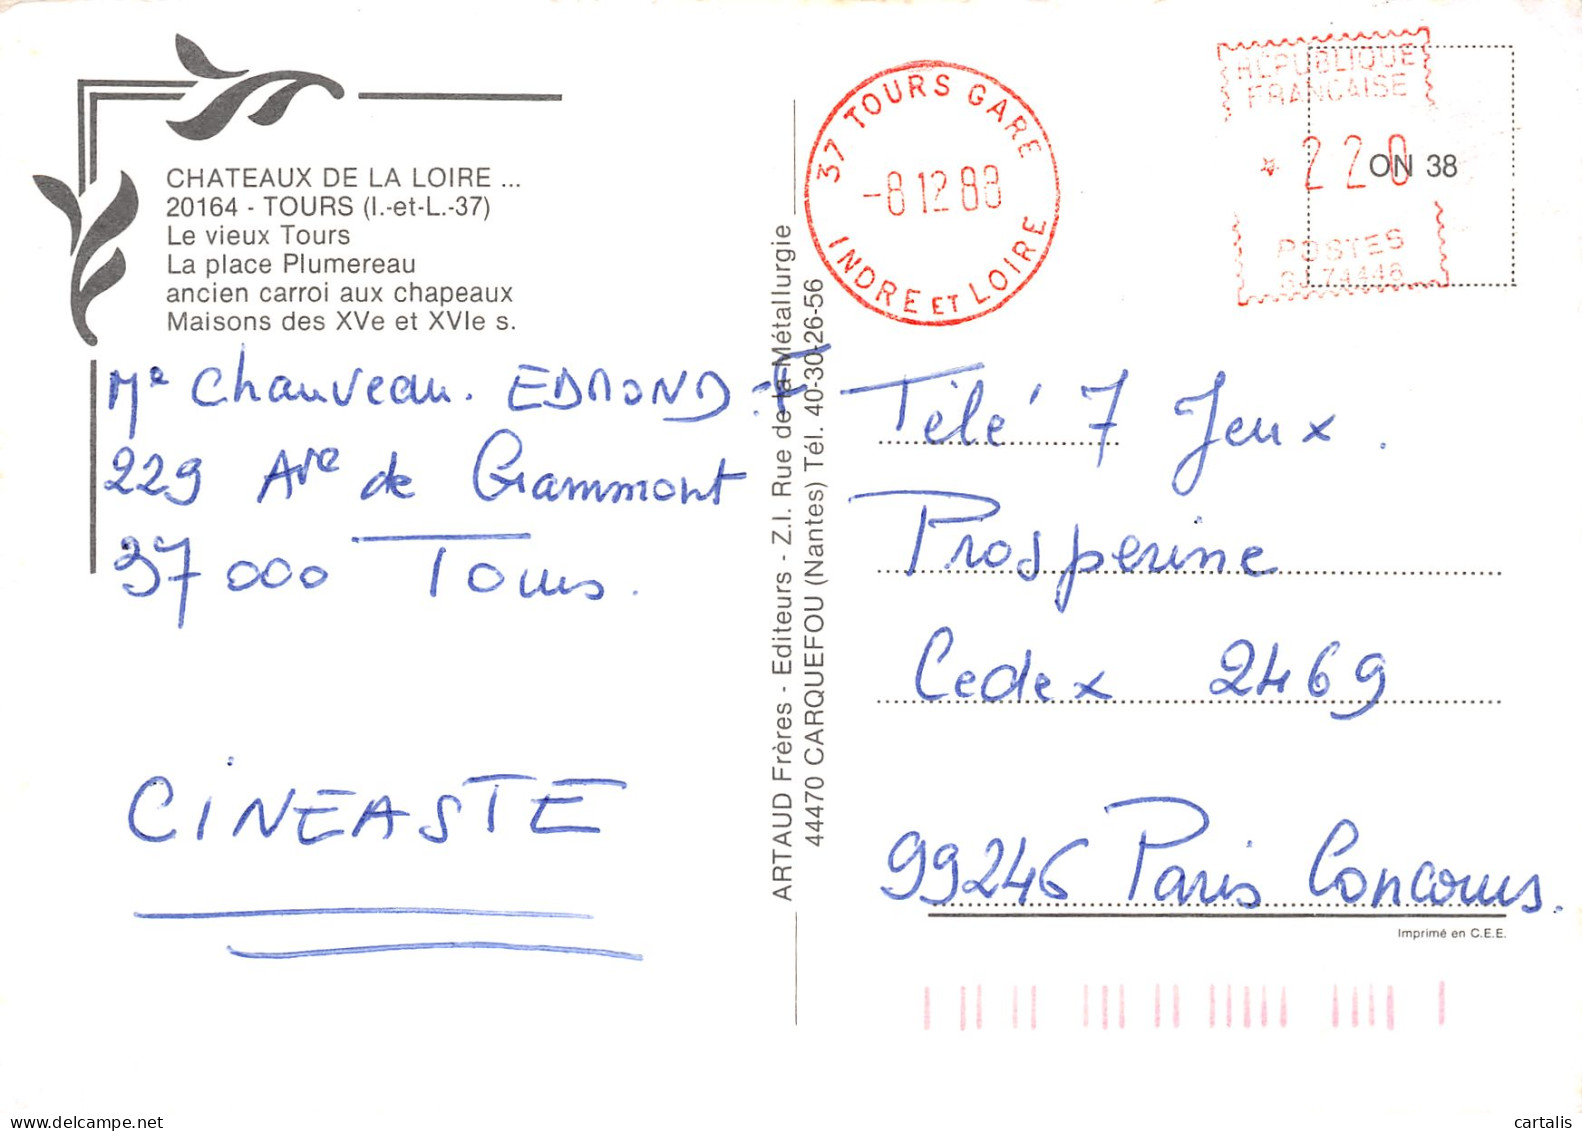 CHATEAUX DE LA LOIRE ...
20164 - TOURS (I.-et-L.-37)
Le vieux Tours
La place Plumereau
ancien carroi aux chapeaux
Maisons des XVe et XVIe s.
Me Chauveau. EDMOND. F
229 Ave de Grammont
37000 Tours.
CINEASTE
ARTAUD Frères - Editeurs - Z.I. Rue de la Métallurgie
44470 CARQUEFOU (Nantes) Tél. 40-30-26-56
37 TOURS GARE
-8 12 88
INDRE ET LOIRE
REPUBLIQUE
FRANCAISE
* 220
ON 38
POSTES
Télé 7 Jeux.
Prosperine
Cedex 2469
99246 Paris Concours.
Imprimé en C.E.E.
www.delcampe.net
cartalis